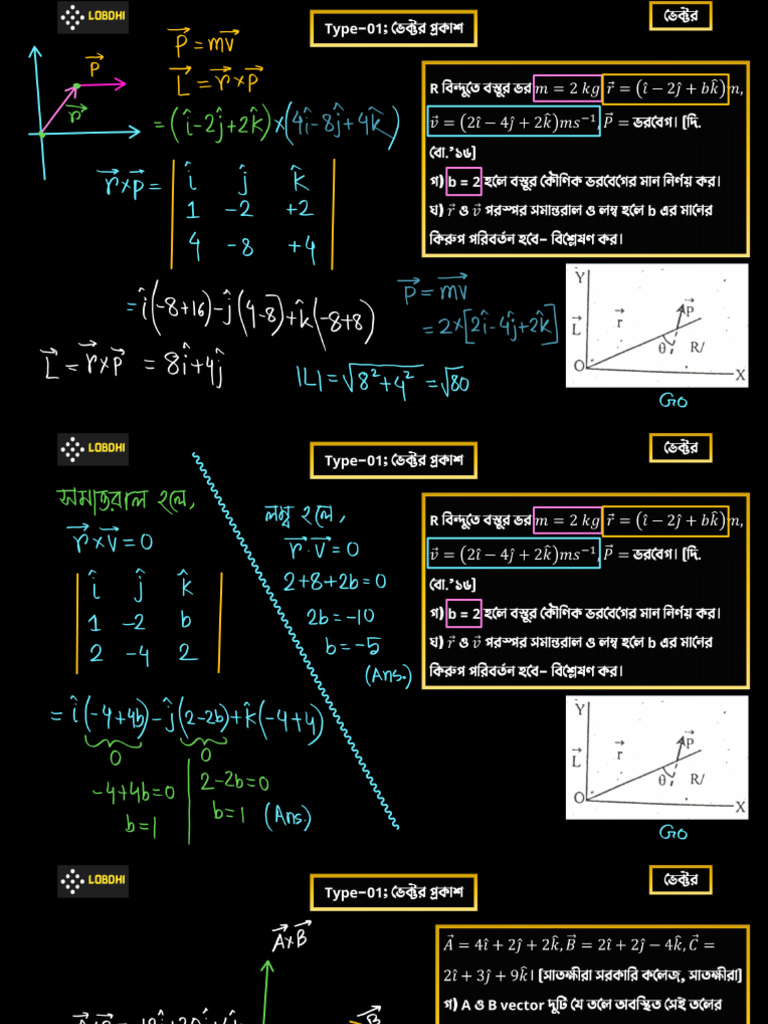 LOBDHI
Type-01; ভেক্টর প্রকাশ
ভেক্টর
P⃗ = mv⃗
L⃗ = r⃗×P⃗
= (î-2ĵ+2k̂)×(4î-8ĵ+4k̂)
P⃗
r⃗
r⃗×p⃗ =
î ĵ k̂
1 -2 +2
4 -8 +4
= î(-8+16)-ĵ(4-8)+k̂(-8+8)
L⃗ = r⃗×p⃗ = 8î+4ĵ
P⃗ = mv⃗
= 2×[2î-4ĵ+2k̂]
|L| = √8²+4² = √80
R বিন্দুতে বস্তুর ভর m = 2 kg r⃗ = (î − 2ĵ + bk̂) m,
v⃗ = (2î − 4ĵ + 2k̂)ms⁻¹, P⃗ = ভরবেগ। [দি.
বো.'১৬]
গ) b = 2 হলে বস্তুর কৌণিক ভরবেগের মান নির্ণয় কর।
ঘ) r⃗ ও v⃗ পরস্পর সমান্তরাল ও লম্ব হলে b এর মানের
কিরুপ পরিবর্তন হবে– বিশ্লেষণ কর।
Y
P⃗
L⃗ r⃗
θ R/
O X
Go
LOBDHI
Type-01; ভেক্টর প্রকাশ
ভেক্টর
সমান্তরাল হলে,
r⃗×v⃗ = 0
î ĵ k̂
1 -2 b
2 -4 2
= î(-4+4b)-ĵ(2-2b)+k̂(-4+4)
0 0
-4+4b=0
b=1
2-2b=0
b=1 (Ans.)
লম্ব হলে,
r⃗.v⃗ = 0
2+8+2b=0
2b=-10
b=-5
(Ans.)
R বিন্দুতে বস্তুর ভর m = 2 kg r⃗ = (î − 2ĵ + bk̂) m,
v⃗ = (2î − 4ĵ + 2k̂)ms⁻¹, P⃗ = ভরবেগ। [দি.
বো.'১৬]
গ) b = 2 হলে বস্তুর কৌণিক ভরবেগের মান নির্ণয় কর।
ঘ) r⃗ ও v⃗ পরস্পর সমান্তরাল ও লম্ব হলে b এর মানের
কিরুপ পরিবর্তন হবে– বিশ্লেষণ কর।
Y
P⃗
L⃗ r⃗
θ R/
O X
Go
LOBDHI
Type-01; ভেক্টর প্রকাশ
ভেক্টর
A⃗×B⃗
B⃗
A⃗ = 4î + 2ĵ + 2k̂, B⃗ = 2î + 2ĵ − 4k̂, C⃗ =
2î + 3ĵ + 9k̂। [সাতক্ষীরা সরকারি কলেজ, সাতক্ষীরা]
গ) A ও B vector দুটি যে তলে অবস্থিত সেই তলের